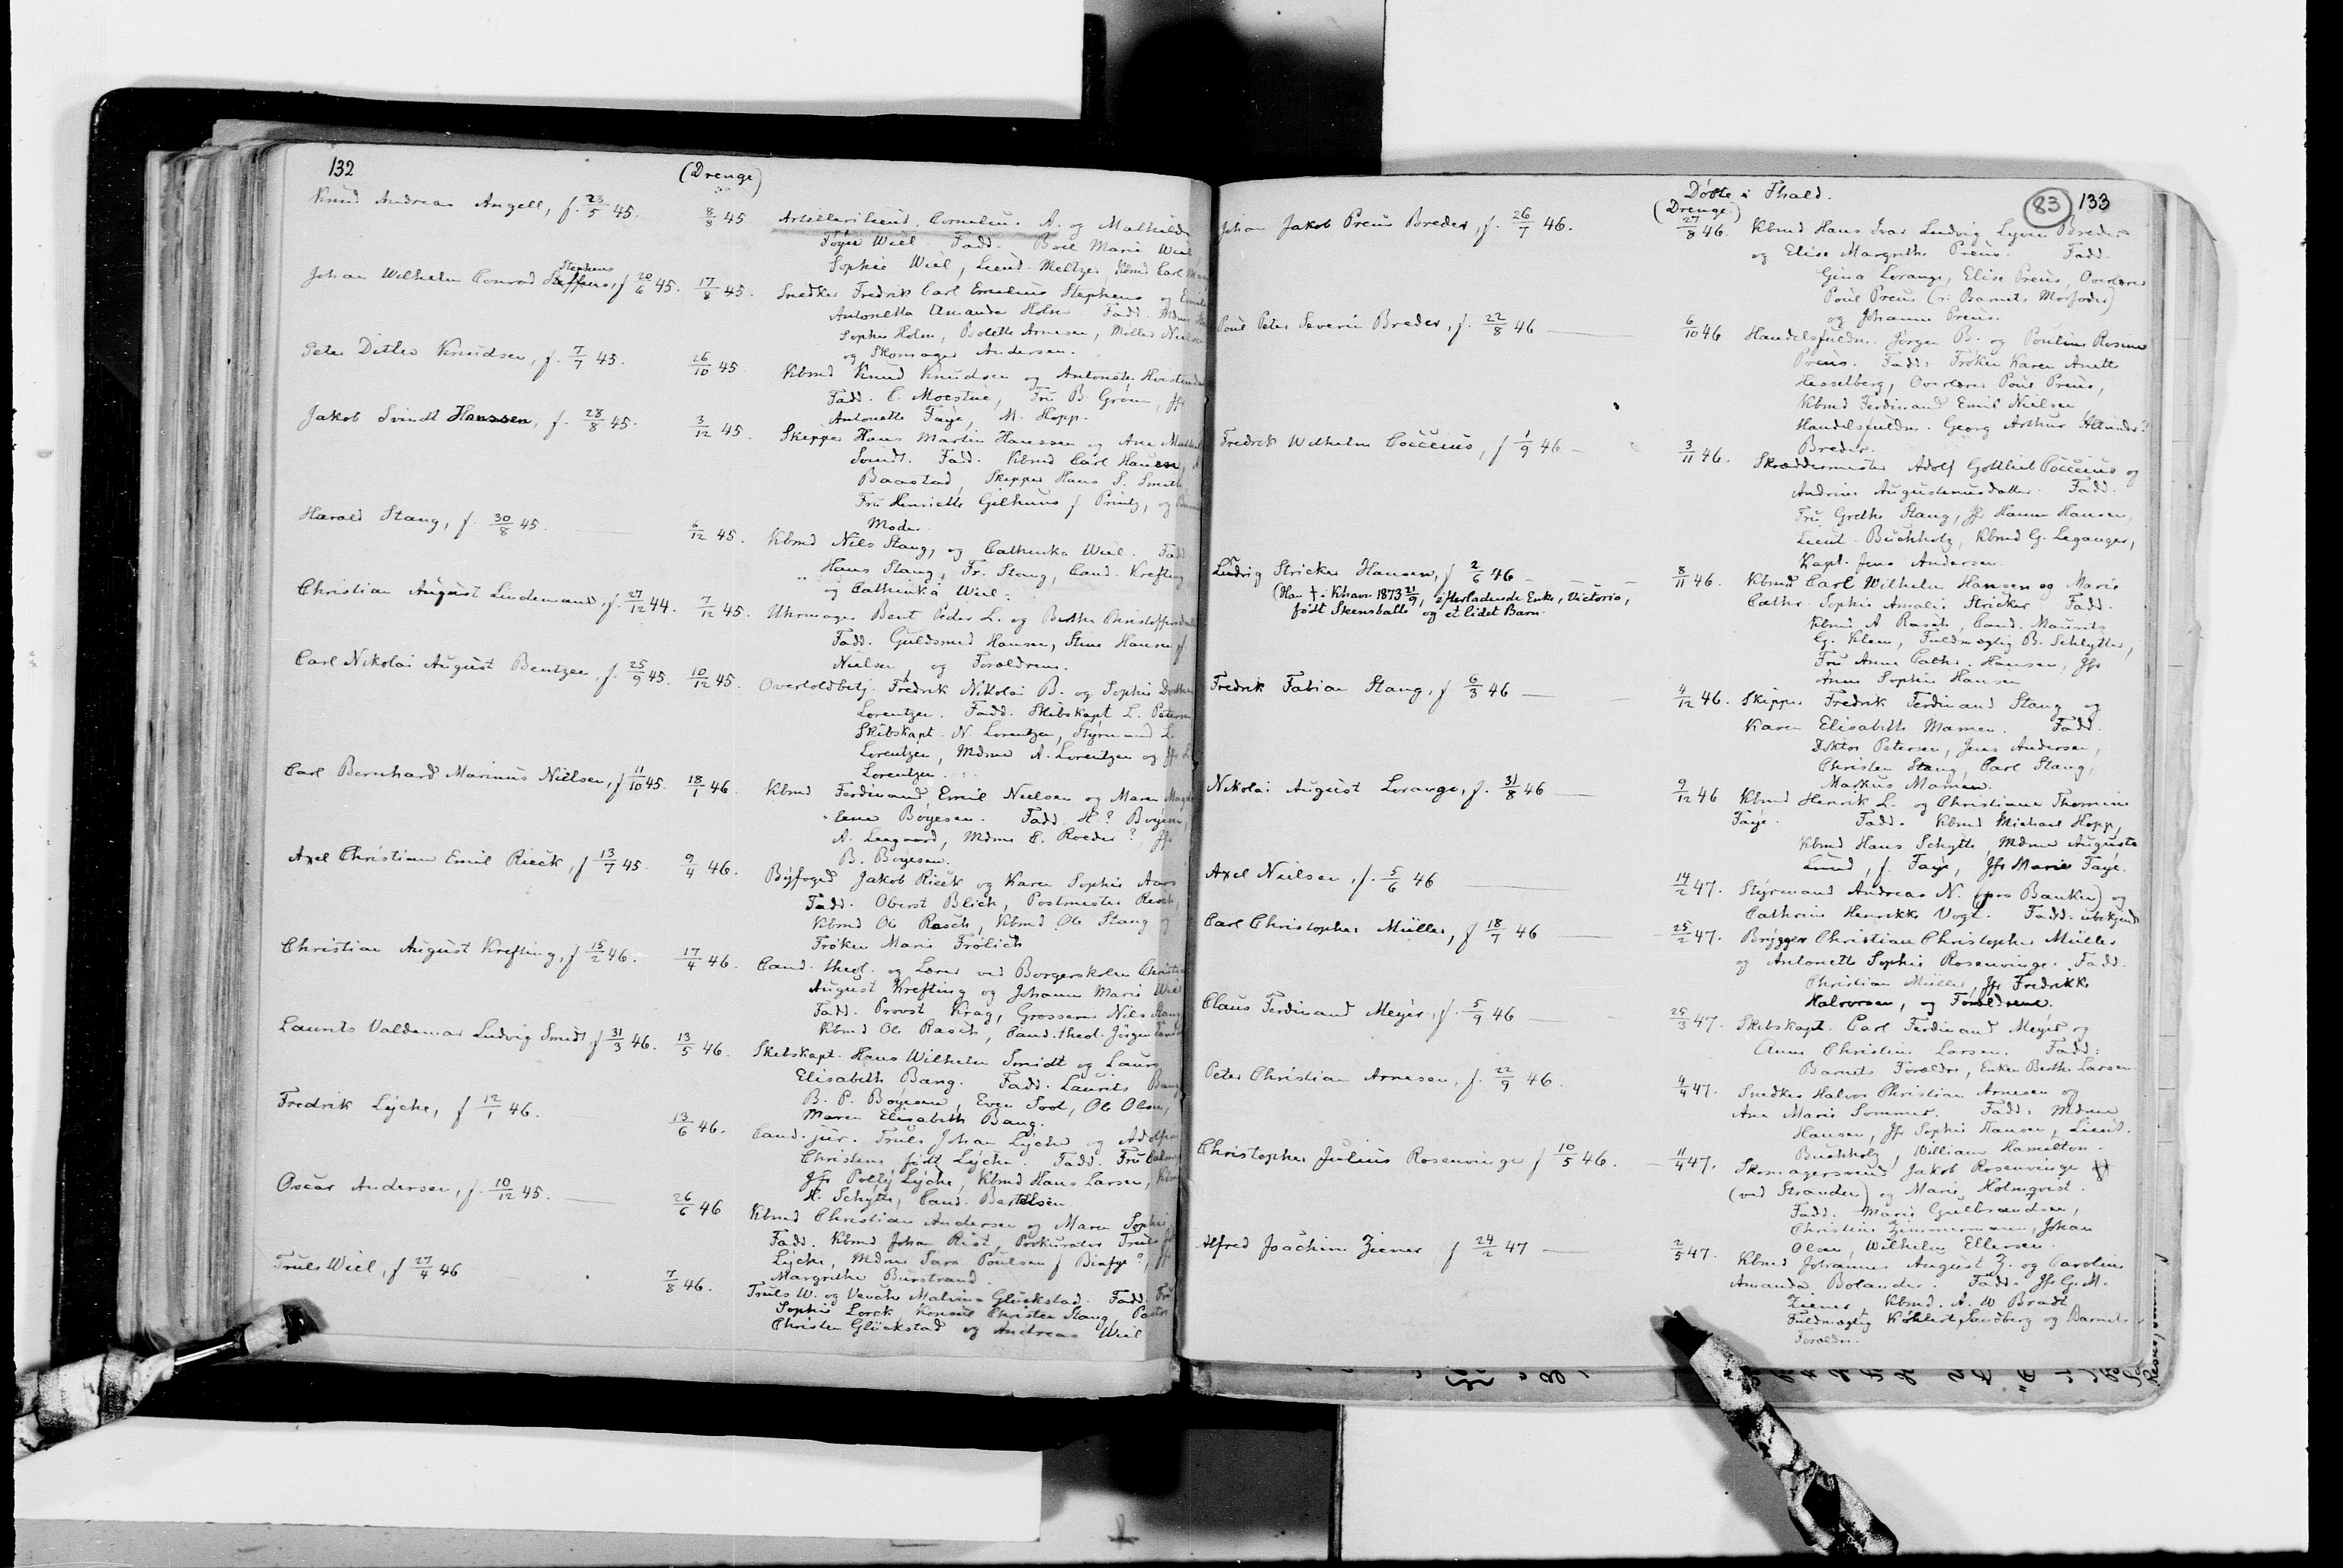 132 (Drenge)
Knud Andreas Angell, f. 23/5 45. 8/8 45 Artillerilieut. Cornelius A. og Mathilde
Føyn Wiel. Fadd. Boel Marie Wiel
Sophie Wiel, Lieut. Meltzer Kbmd Carl
Stephens
Johan Wilhelm Conrad Steffens, f 20/6 45. 17/8 45. Snedker Fredrik Carl Emelius Stephens og
Antonetta Amanda Holm Fadd. Mdme
Sophie Holm, Bolette Arnesen, Møller
og Skomager Andersen.
Peter Ditlev Knudsen, f. 7/7 45. 26/10 45 Kbmd Knud Knudsen og Antonette
Fadd. C. Moestue, Fru B. Grønn, Jfr
Antonette Faye, M. Hopp.
Jakob Svindt Hanssen, f. 28/8 45. 3/12 45. Skipper Hans Martin Hanssen og Ane
Svindt. Fadd. Kbmd Carl Hansen,
Baastad, Skipper Hans S. Smith
Fru Henriette Gilhuus f. Printz, og
Moder.
Harald Stang, f. 30/8 45. 6/12 45. Kbmd Nils Stang, og Cathinka Wiel. Fadd.
Hans Stang, Fr. Stang, Cand. Krefting
og Cathinka Wiel.
Christian August Lindemand, f. 27/12 44. 7/12 45. Uhrmager Bent Peder L. og Berthe
Fadd. Guldsmed Hansen, Stine Hansen f
Nielsen, og Forældrene.
Carl Nikolai August Bentzen, f. 25/9 45. 10/12 45. Overtoldbetj. Fredrik Nikolai B. og Sophie
Lorentzen. Fadd. Skibskapt L. Petersen
Skibskapt. N. Lorentzen, Styrmand L.
Lorentzen, Mdme A. Lorentzen og Jfr
Lorentzen.
Carl Bernhard Marinus Nielsen, f 11/10 45. 18/1 46. Kbmd Ferdinand Emil Nielsen og Maren
lene Boyesen. Fadd. H? Boyesen,
A. Laagaard, Mdme C. Roeder?, Jfr
B. Boyesen.
Axel Christian Emil Rieck, f 13/7 45. 9/4 46. Byfoged Jakob Rieck og Karen Sophie Aars
Fadd. Oberst Blich, Postmester Resch,
Kbmd Ole Rasch, Kbmd Ole Stang og
Frøken Marie Frølich
Christian August Krefting, f 15/2 46. 17/4 46. Cand. theol. og Lærer ved Borgerskolen Christian
August Krefting og Johanne Marie Wiel
Fadd. Provst Krag, Grosserer Nils Stang
Kbmd Ole Rasch, Cand. theol. Jørgen
Laurits Valdemar Ludvig Smidt, f 31/3 46. 13/5 46. Skibskapt. Hans Wilhelm Smidt og Laura
Elisabeth Bang. Fadd. Laurits Bang
B. P. Boyesen, Even Soot, Ole Olsen,
Maren Elisabeth Bang.
Fredrik Lyche, f 12/1 46. 13/6 46. Cand. jur. Truls Johan Lyche og
Christine født Lyche. Fadd. Fru
Jfr Polly Lyche, Kbmd Hans Larsen,
H. Schytte, Cand. Bertelsen
Oscar Andersen, f. 10/12 45. 26/6 46 Kbmd Christian Andersen og Maren Sophie
Fadd. Kbmd Johan Rist, Prokurator Truls
Lyche, Mdme Sara Poulsen f
Margrethe Burstrand.
Truls Wiel, f 27/4 46 7/8 46. Truls W. og Venche Malvina Glückstad. Fadd. Fru
Sophie Lorck, Konsul Christen Stang, Pastor
Christen Glückstad og Andreas Wiel
Døbte i Fhald. 83 133
(Drenge)
Johan Jakob Preus Breder, f. 26/7 46. 27/8 46. Kbmd Hans Ivar Ludvig Breder
og Elise Margrethe Preus. Fadd.
Gina Lorange, Elise Preus, Overlærer
Poul Preus (ɔ: Barnets Morfader)
og Johanne Preus.
Poul Peter Severin Breder, f. 22/8 46 6/10 46 Handelsfuldm. Jørgen B. og Pouline Rosine
Preus. Fadd: Frøken Karen Anette
Hesselberg, Overlærer Poul Preus,
Kbmd Ferdinand Emil Nielsen
Handelsfuldm. Georg Arthur
Breder.
Fredrik Wilhelm Cocceius, f 1/9 46 3/11 46. Skræddermester Adolf Gottlieb Cocceius og
Andrine Augustinusdatter. Fadd.
Fru Grethe Stang, Jfr Hanne Hansen,
Lieut. Buchholz, Kbmd G. Leganger,
Kapt. Jens Andersen.
Ludvig Stricker Hansen, f 2/6 46 8/11 46. Kbmd Carl Wilhelm Hansen og Marie
(Han † i Khavn 1873 21/9, efterladende Enke, Victoria,
født Skensballe og et lidet Barn.
Cathr. Sophie Amalie Stricker Fadd.
Kbmd A Rasch, Cand. Maurits
G. Klem, Fuldmægtig B. Schlytter,
Fru Anne Cathr. Hansen, Jfr
Anne Sophie Hansen
Fredrik Fabian Stang, f 6/3 46 4/12 46. Skipper Fredrik Ferdinand Stang og
Karen Elisabeth Mamen. Fadd.
Doktor Petersen, Jens Andersen,
Christen Stang, Carl Stang,
Markus Mamen.
Nikolai August Lorange, f. 31/8 46 9/12 46 Kbmd Henrik L. og Christiane Thomine
Faye. Fadd. Kbmd Michael Hopp,
Kbmd Hans Schytte, Mdme Augusta
Lund, f. Faye, Jfr Marie Faye.
Axel Nielsen, f. 5/6 46 14/2 47. Styrmand Andreas N. (paa Banken) og
Cathrine Henrikke Vogt. Fadd. ubekjendt
Carl Christopher Müller, f 18/7 46 25/2 47. Brygger Christian Christopher Müller
og Antonette Sophie Rosenvinge. Fadd.
Christian Müller, Jfr Fredrikke
Halvorsen, og Forældrene.
Claus Ferdinand Meyer, f. 5/9 46 25/3 47. Skibskapt. Carl Ferdinand Meyer og
Anne Christine Larsen. Fadd:
Barnets Forældre, Enken Berthe Larsen.
Peter Christian Arnesen, f. 22/9 46. 4/4 47. Snedker Halvor Christian Arnesen og
Ane Marie Sommer. Fadd: Mdme
Hansen, Jfr Sophie Hansen, Lieut.
Buchholz, William Hamilton.
Christopher Julius Rosenvinge f 10/5 46. 11/4 47. Skomagersvend Jakob Rosenvinge
(ved Stranden) og Marie Holmqvist.
Fadd. Marie Gulbrandsen,
Christine Zimmermann, Johan
Olsen, Wilhelm Ellersen.
Alfred Joachim Ziener f 24/2 47 2/5 47. Kbmd Johannes August Z. og Caroline
Amanda Bolander. Fadd. Jfr G. M.
Ziener, Kbmd. A. W Bradt
Fuldmægtig Køhlert, Sandberg og Barnets
Forældre.